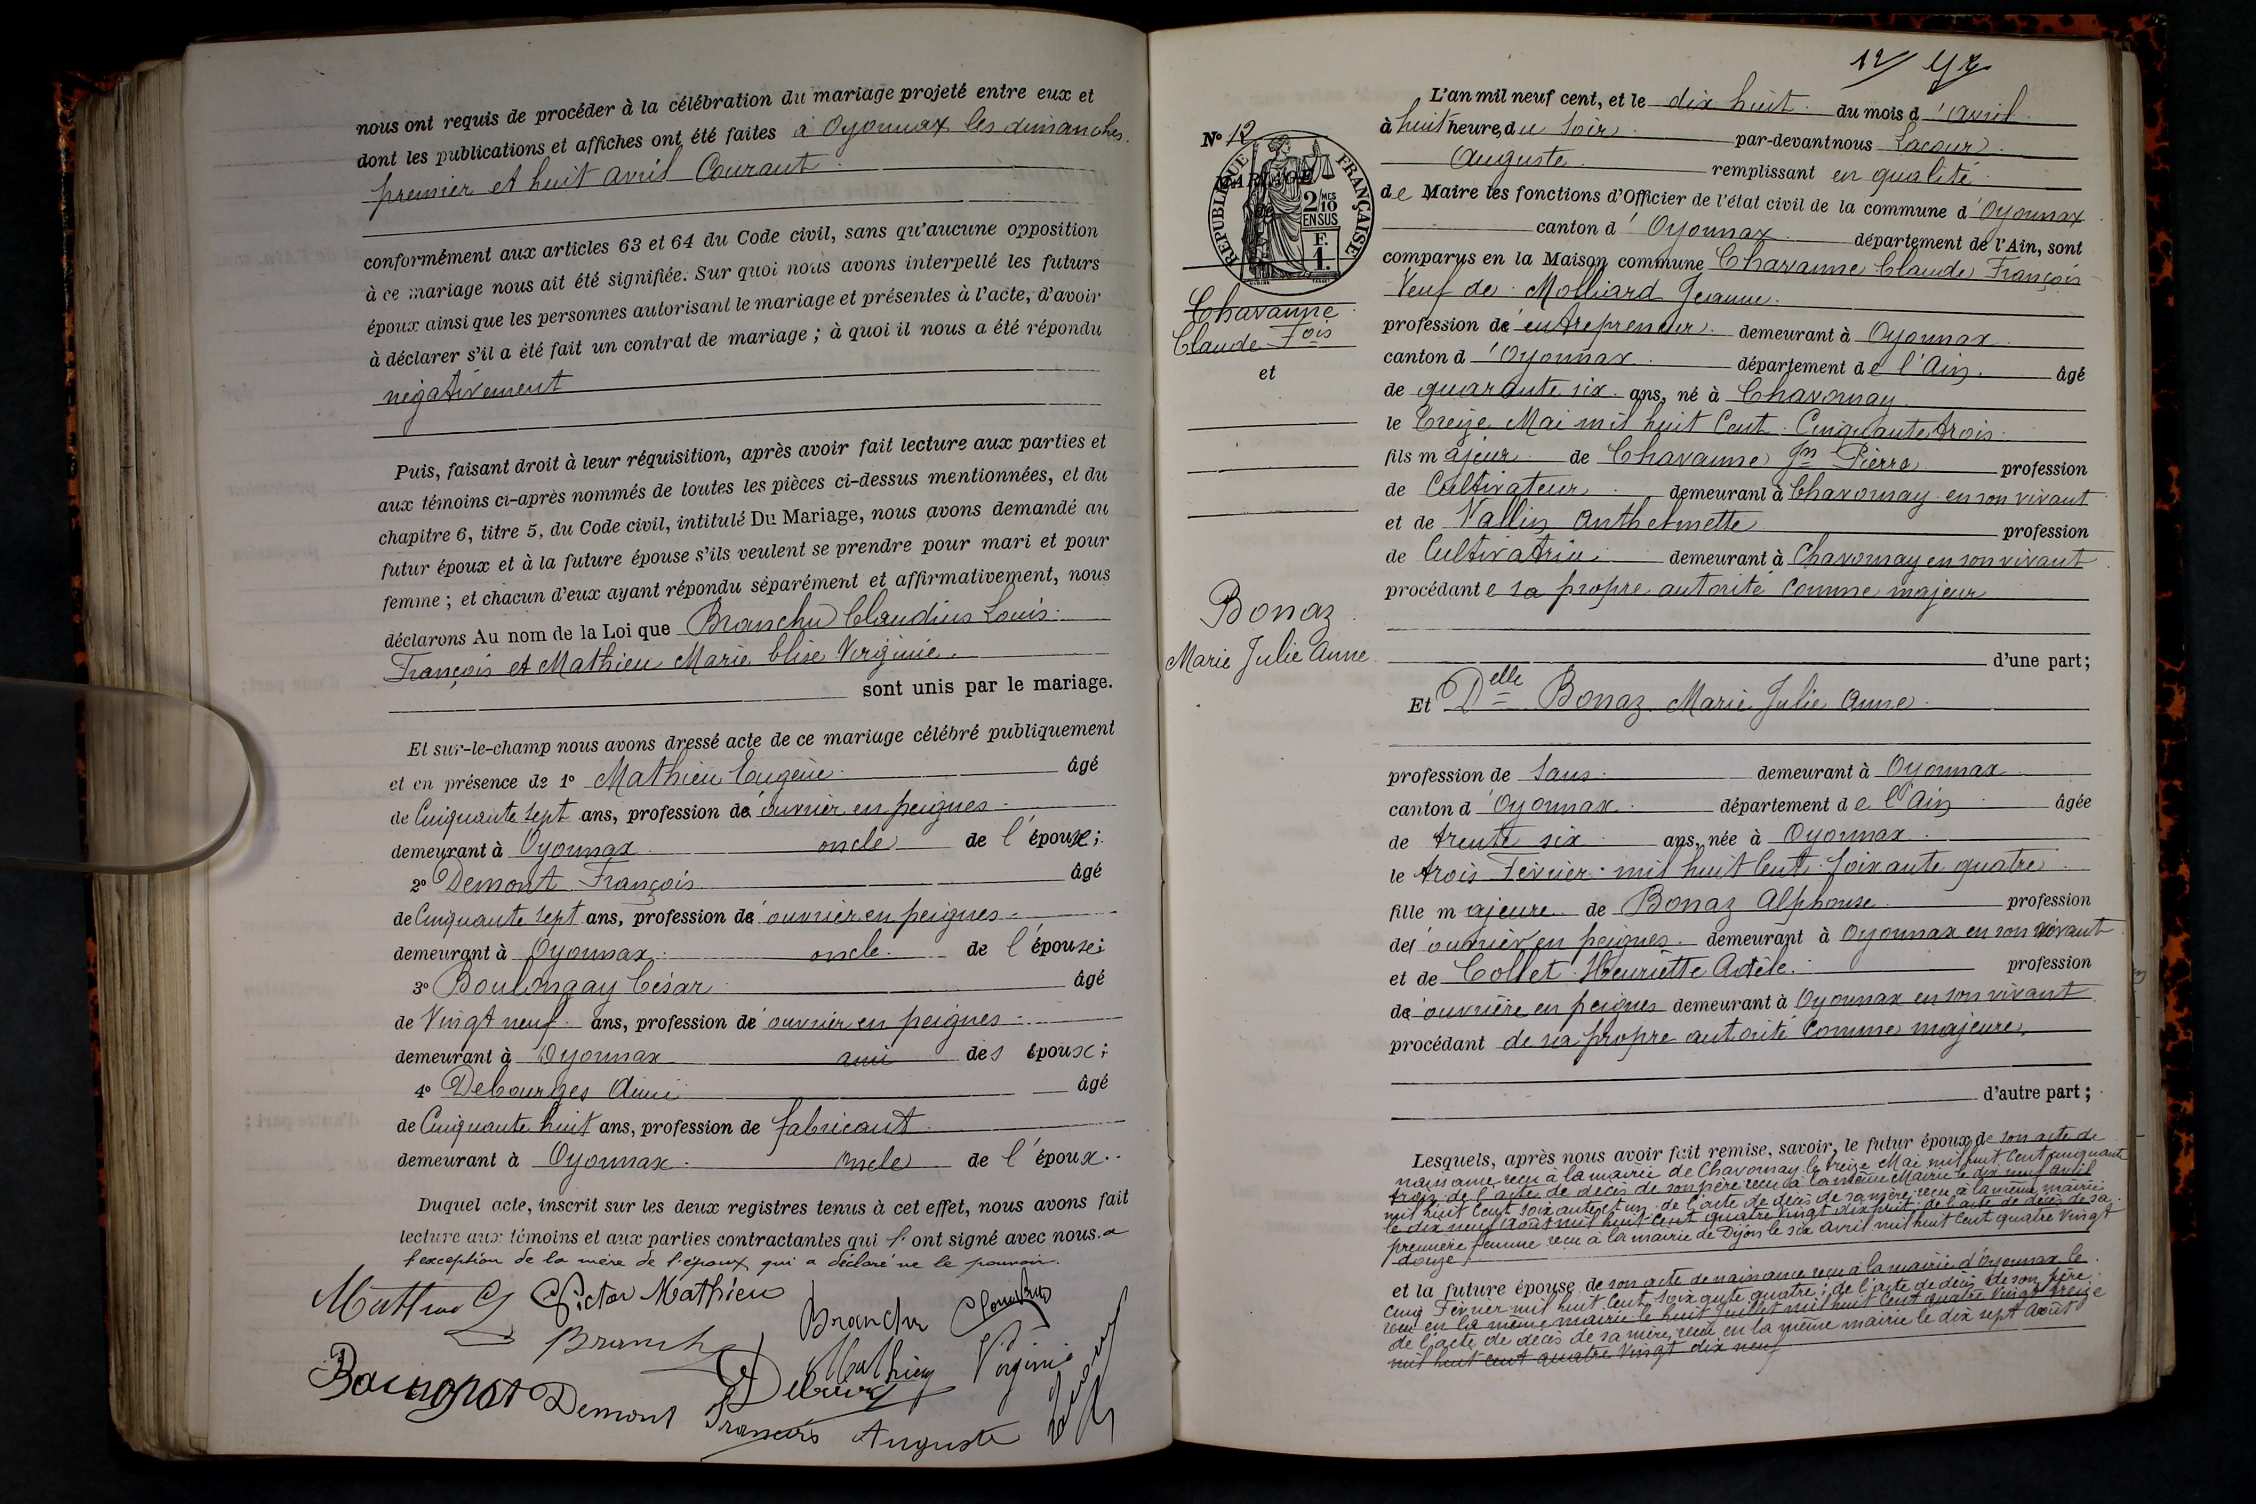 nous ont requis de procéder à la célébration du mariage projeté entre eux et
dont les publications et affiches ont été faites à Oyonnax les dimanches
premier et huit avril Courant
conformément aux articles 63 et 64 du Code civil, sans qu'aucune opposition
à ce mariage nous ait été signifiée. Sur quoi nous avons interpellé les futurs
époux ainsi que les personnes autorisant le mariage et présentes à l'acte, d'avoir
à déclarer s'il a été fait un contrat de mariage ; à quoi il nous a été répondu
négativement
Puis, faisant droit à leur réquisition, après avoir fait lecture aux parties et
aux témoins ci-après nommés de toutes les pièces ci-dessus mentionnées, et du
chapitre 6, titre 5, du Code civil, intitulé Du Mariage, nous avons demandé au
futur époux et à la future épouse s'ils veulent se prendre pour mari et pour
femme ; et chacun d'eux ayant répondu séparément et affirmativement, nous
déclarons Au nom de la Loi que Branchu Claudius Louis
François et Mathieu Marie Elise Virginie
sont unis par le mariage.
Et sur-le-champ nous avons dressé acte de ce mariage célébré publiquement
et en présence de 1° Mathieu Eugène âgé
de Cinquante sept ans, profession d'ouvrier en peignes
demeurant à Oyonnax oncle de l'épouse ;
2° Demont François âgé
de Cinquante sept ans, profession d'ouvrier en peignes
demeurant à Oyonnax oncle de l'épouse ;
3° Boulongay César âgé
de Vingt neuf ans, profession d'ouvrier en peignes
demeurant à Oyonnax ami des époux ;
4° Debourges Aimé âgé
de Cinquante huit ans, profession de fabricant
demeurant à Oyonnax oncle de l'époux.
Duquel acte, inscrit sur les deux registres tenus à cet effet, nous avons fait
lecture aux témoins et aux parties contractantes qui l'ont signé avec nous. a
l'exception de la mère de l'époux qui a déclaré ne le pouvoir.
Victor Mathieu
Branchu
Mathieu Virginie
Demont François Auguste
12/ 
L'an mil neuf cent, et le dix huit du mois d'avril
à huit heure, du soir par-devant nous Lacour
Auguste remplissant en qualité
de Maire les fonctions d'Officier de l'état civil de la commune d'Oyonnax
canton d'Oyonnax département de l'Ain, sont
comparus en la Maison commune Chavanne Claude François
Veuf de Molliard Jeanne
profession d'entrepreneur demeurant à Oyonnax
canton d'Oyonnax département de l'Ain âgé
de quarante six ans, né à Chavornay
le treize Mai mil huit Cent Cinquante trois
fils majeur de Chavanne Jn Pierre profession
de Cultivateur demeurant à Chavornay en son vivant
et de Vallin Anthelmette profession
de Cultivatrice demeurant à Chavornay en son vivant
procédant de sa propre autorité comme majeur
d'une part ;
Et Delle Bonaz Marie Julie Anne
profession de sans demeurant à Oyonnax
canton d'Oyonnax département de l'Ain âgée
de trente six ans, née à Oyonnax
le trois Février mil huit Cent soixante quatre
fille majeure de Bonaz Alphonse profession
d'ouvrier en peignes demeurant à Oyonnax en son vivant
et de Collet Henriette Adèle profession
d'ouvrière en peignes demeurant à Oyonnax en son vivant
procédant de sa propre autorité comme majeure
d'autre part ;
Lesquels, après nous avoir fait remise, savoir, le futur époux, de son acte de
naissance reçu à la mairie de Chavornay le treize Mai mil huit Cent cinquante
trois de l'acte de décès de son père reçu à la même Mairie le dix neuf avril
mil huit Cent soixante et un, de l'acte de décès de sa mère reçu à la même mairie
le dix neuf Août mil huit Cent quatre vingt dix huit, de l'acte de décès de sa
première femme reçu à la mairie de Dijon le six avril mil huit Cent quatre Vingt
douze
et la future épouse de son acte de naissance reçu à la mairie d'Oyonnax le
cinq Février mil huit Cent soixante quatre ; de l'acte de décès de son père
reçu en la même mairie le huit Juillet mil huit Cent quatre Vingt treize
de l'acte de décès de sa mère, reçu en la même mairie le dix sept Août
mil huit cent quatre Vingt dix neuf
N° 12
MARIAGE
de
RÉPUBLIQUE FRANÇAISE
2/10 EN SUS
F. 1.
Chavanne
Claude Fois
et
Bonaz
Marie Julie Anne